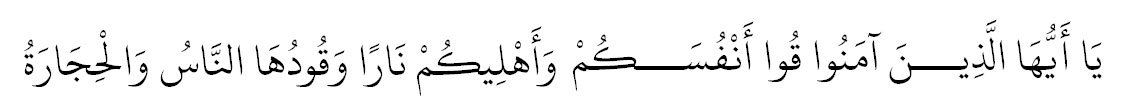 يَا أَيُّهَا الَّذِيـــنَ آمَنُوا قُوا أَنْفُسَـــكُمْ وَأَهْلِيكُمْ نَارًا وَقُودُهَا النَّاسُ وَالْحِجَارَةُ